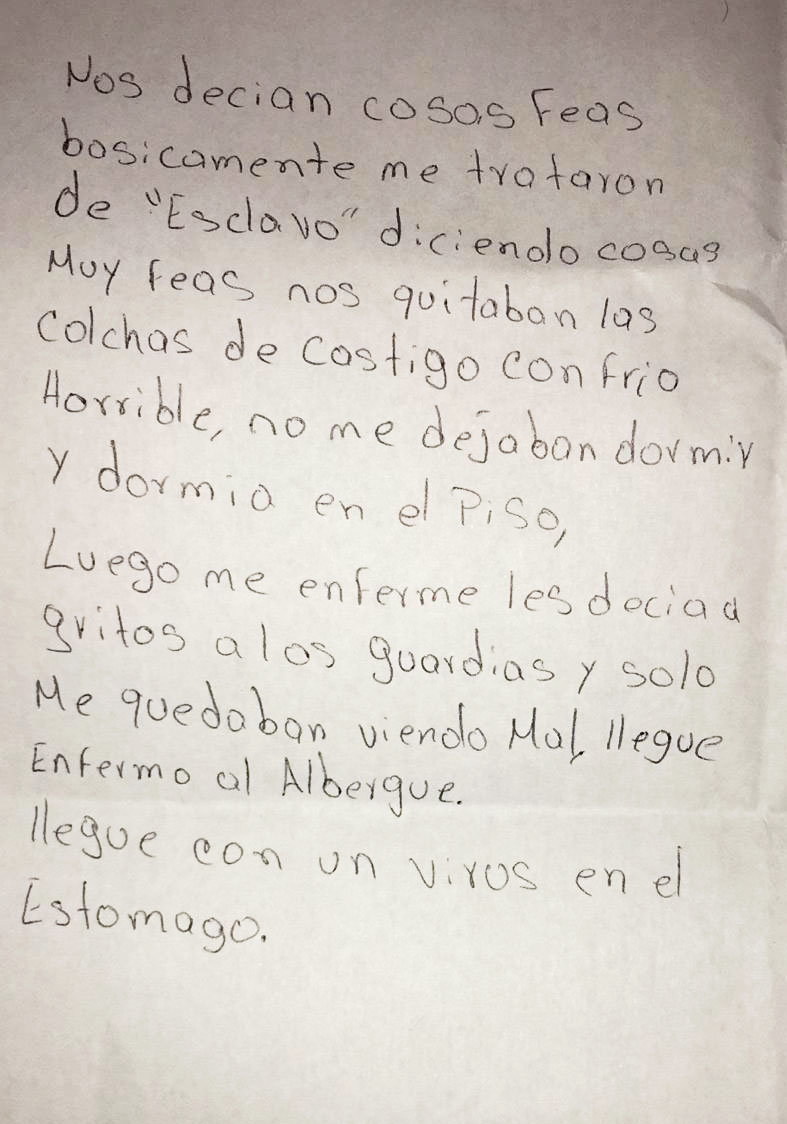 Nos decian cosas Feas
basicamente me trataron
de "Esclavo" diciendo cosas
Muy Feas nos quitaban las
Colchas de Castigo con frio
Horrible, no me dejaban dormir
Y dormia en el Piso,
Luego me enferme les decia a
gritos a los guardias y solo
Me quedaban viendo Mal, llegue
Enfermo al Albergue.
llegue con un virus en el
Estomago.